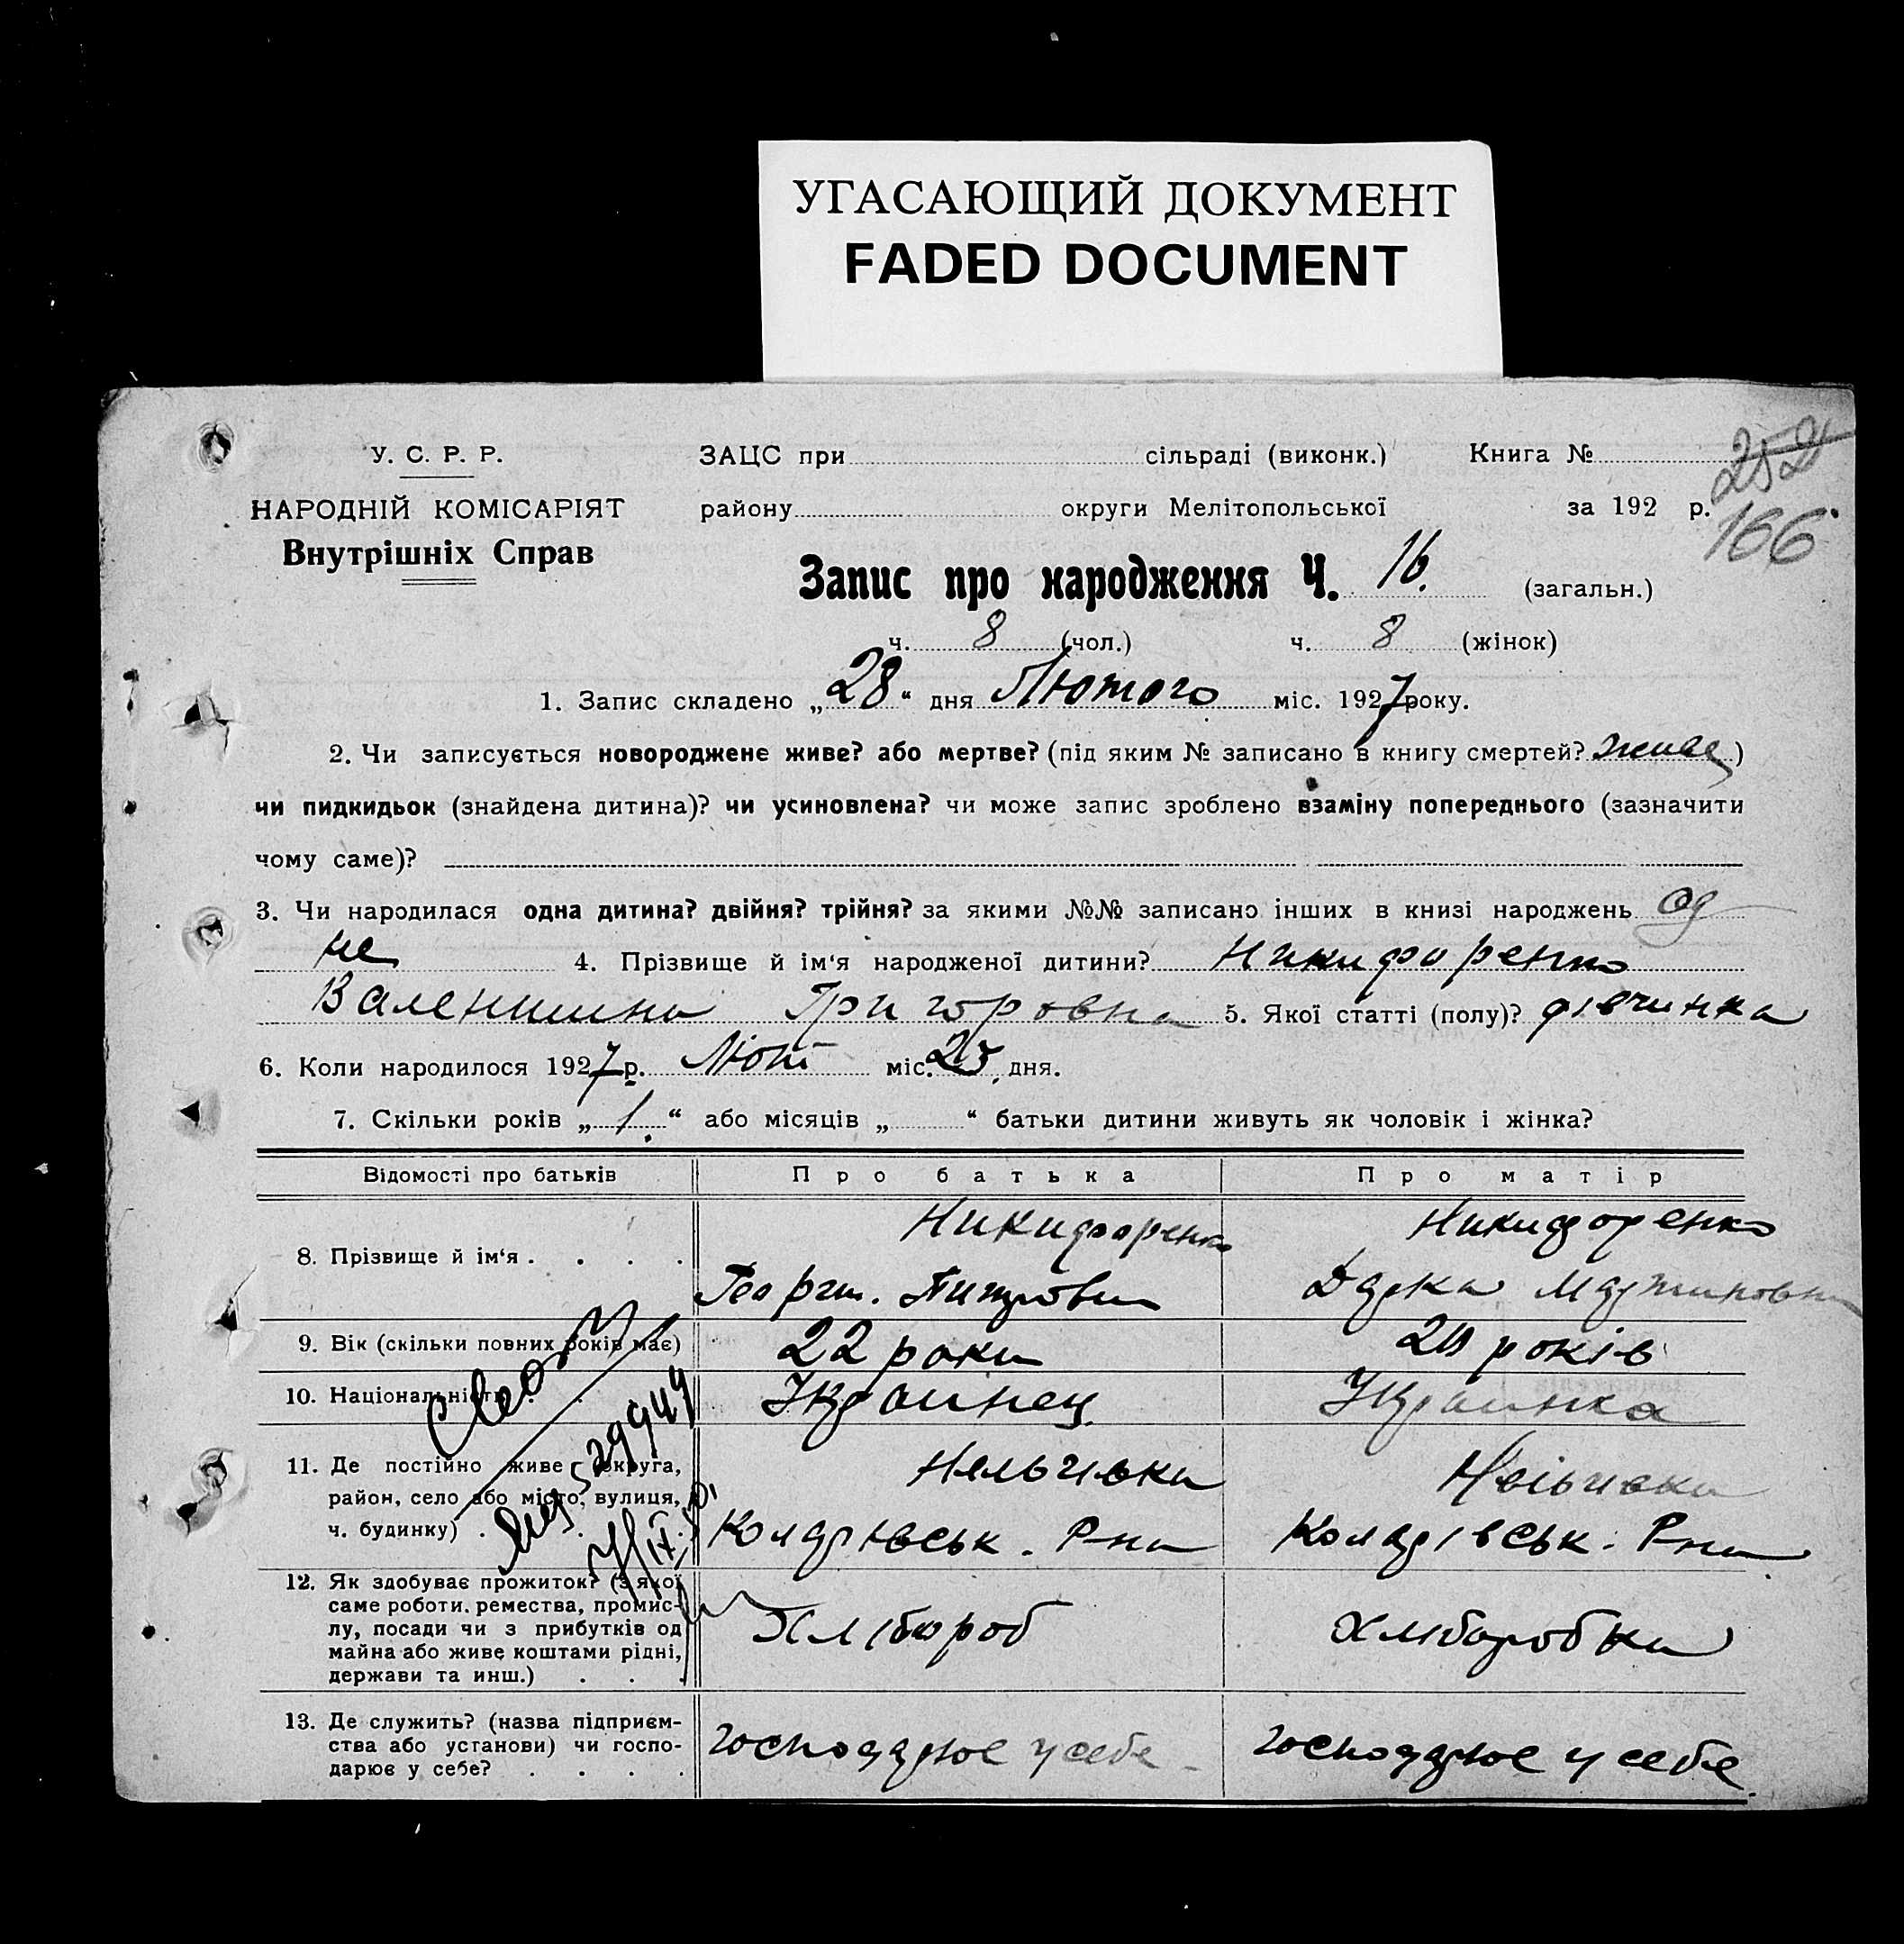 УГАСАЮЩИЙ ДОКУМЕНТ
FADED DOCUMENT
252
166
У. С. Р. Р.
НАРОДНІЙ КОМІСАРІЯТ
Внутрішніх Справ
ЗАЦС при сільраді (виконк.) Книга №
району округи Мелітопольської за 192 р.
Запис про народження Ч. 16. (загальн.)
ч. 8 (чол.) ч. 8 (жінок)
1. Запис складено „28“ дня Лютого міс. 1927 року.
2. Чи записується новороджене живе? або мертве? (під яким № записано в книгу смертей? живе)
чи пидкидьок (знайдена дитина)? чи усиновлена? чи може запис зроблено взаміну попереднього (зазначити
чому саме)?
3. Чи народилася одна дитина? двійня? трійня? за якими №№ записано інших в книзі народжень од
не 4. Прізвище й ім‘я народженої дитини? Никифоренко
Валентина Григоровна 5. Якої статті (полу)? дівчинка
6. Коли народилося 1927 р. Лют міс. 23 дня.
7. Скільки років „1.“ або місяців „ “ батьки дитини живуть як чоловік і жінка?
Відомості про батьків Про батька Про матір
8. Прізвище й ім‘я . . . . .
Никифоренко
Георги. Питрович
Никифоренко
Дарка
9. Вік (скільки повних років має)
22 роки
20 років
10. Національність
Украинец
Украинка
11. Де постійно живе (округа,
район, село або місто, вулиця,
ч. будинку) . .
Нельгивка
Коларівськ. Р-на
Коларівськ. Р-на
12. Як здобуває прожиток? (з якої
саме роботи, ремества, промис-
лу, посади чи з прибутків од
майна або живе коштами рідні,
держави та инш.) . . .
Хлібороб
Хліборобка
13. Де служить? (назва підприєм-
ства або установи) чи госпо-
дарює у себе? . . . .
господарює у себе
господарює у себе